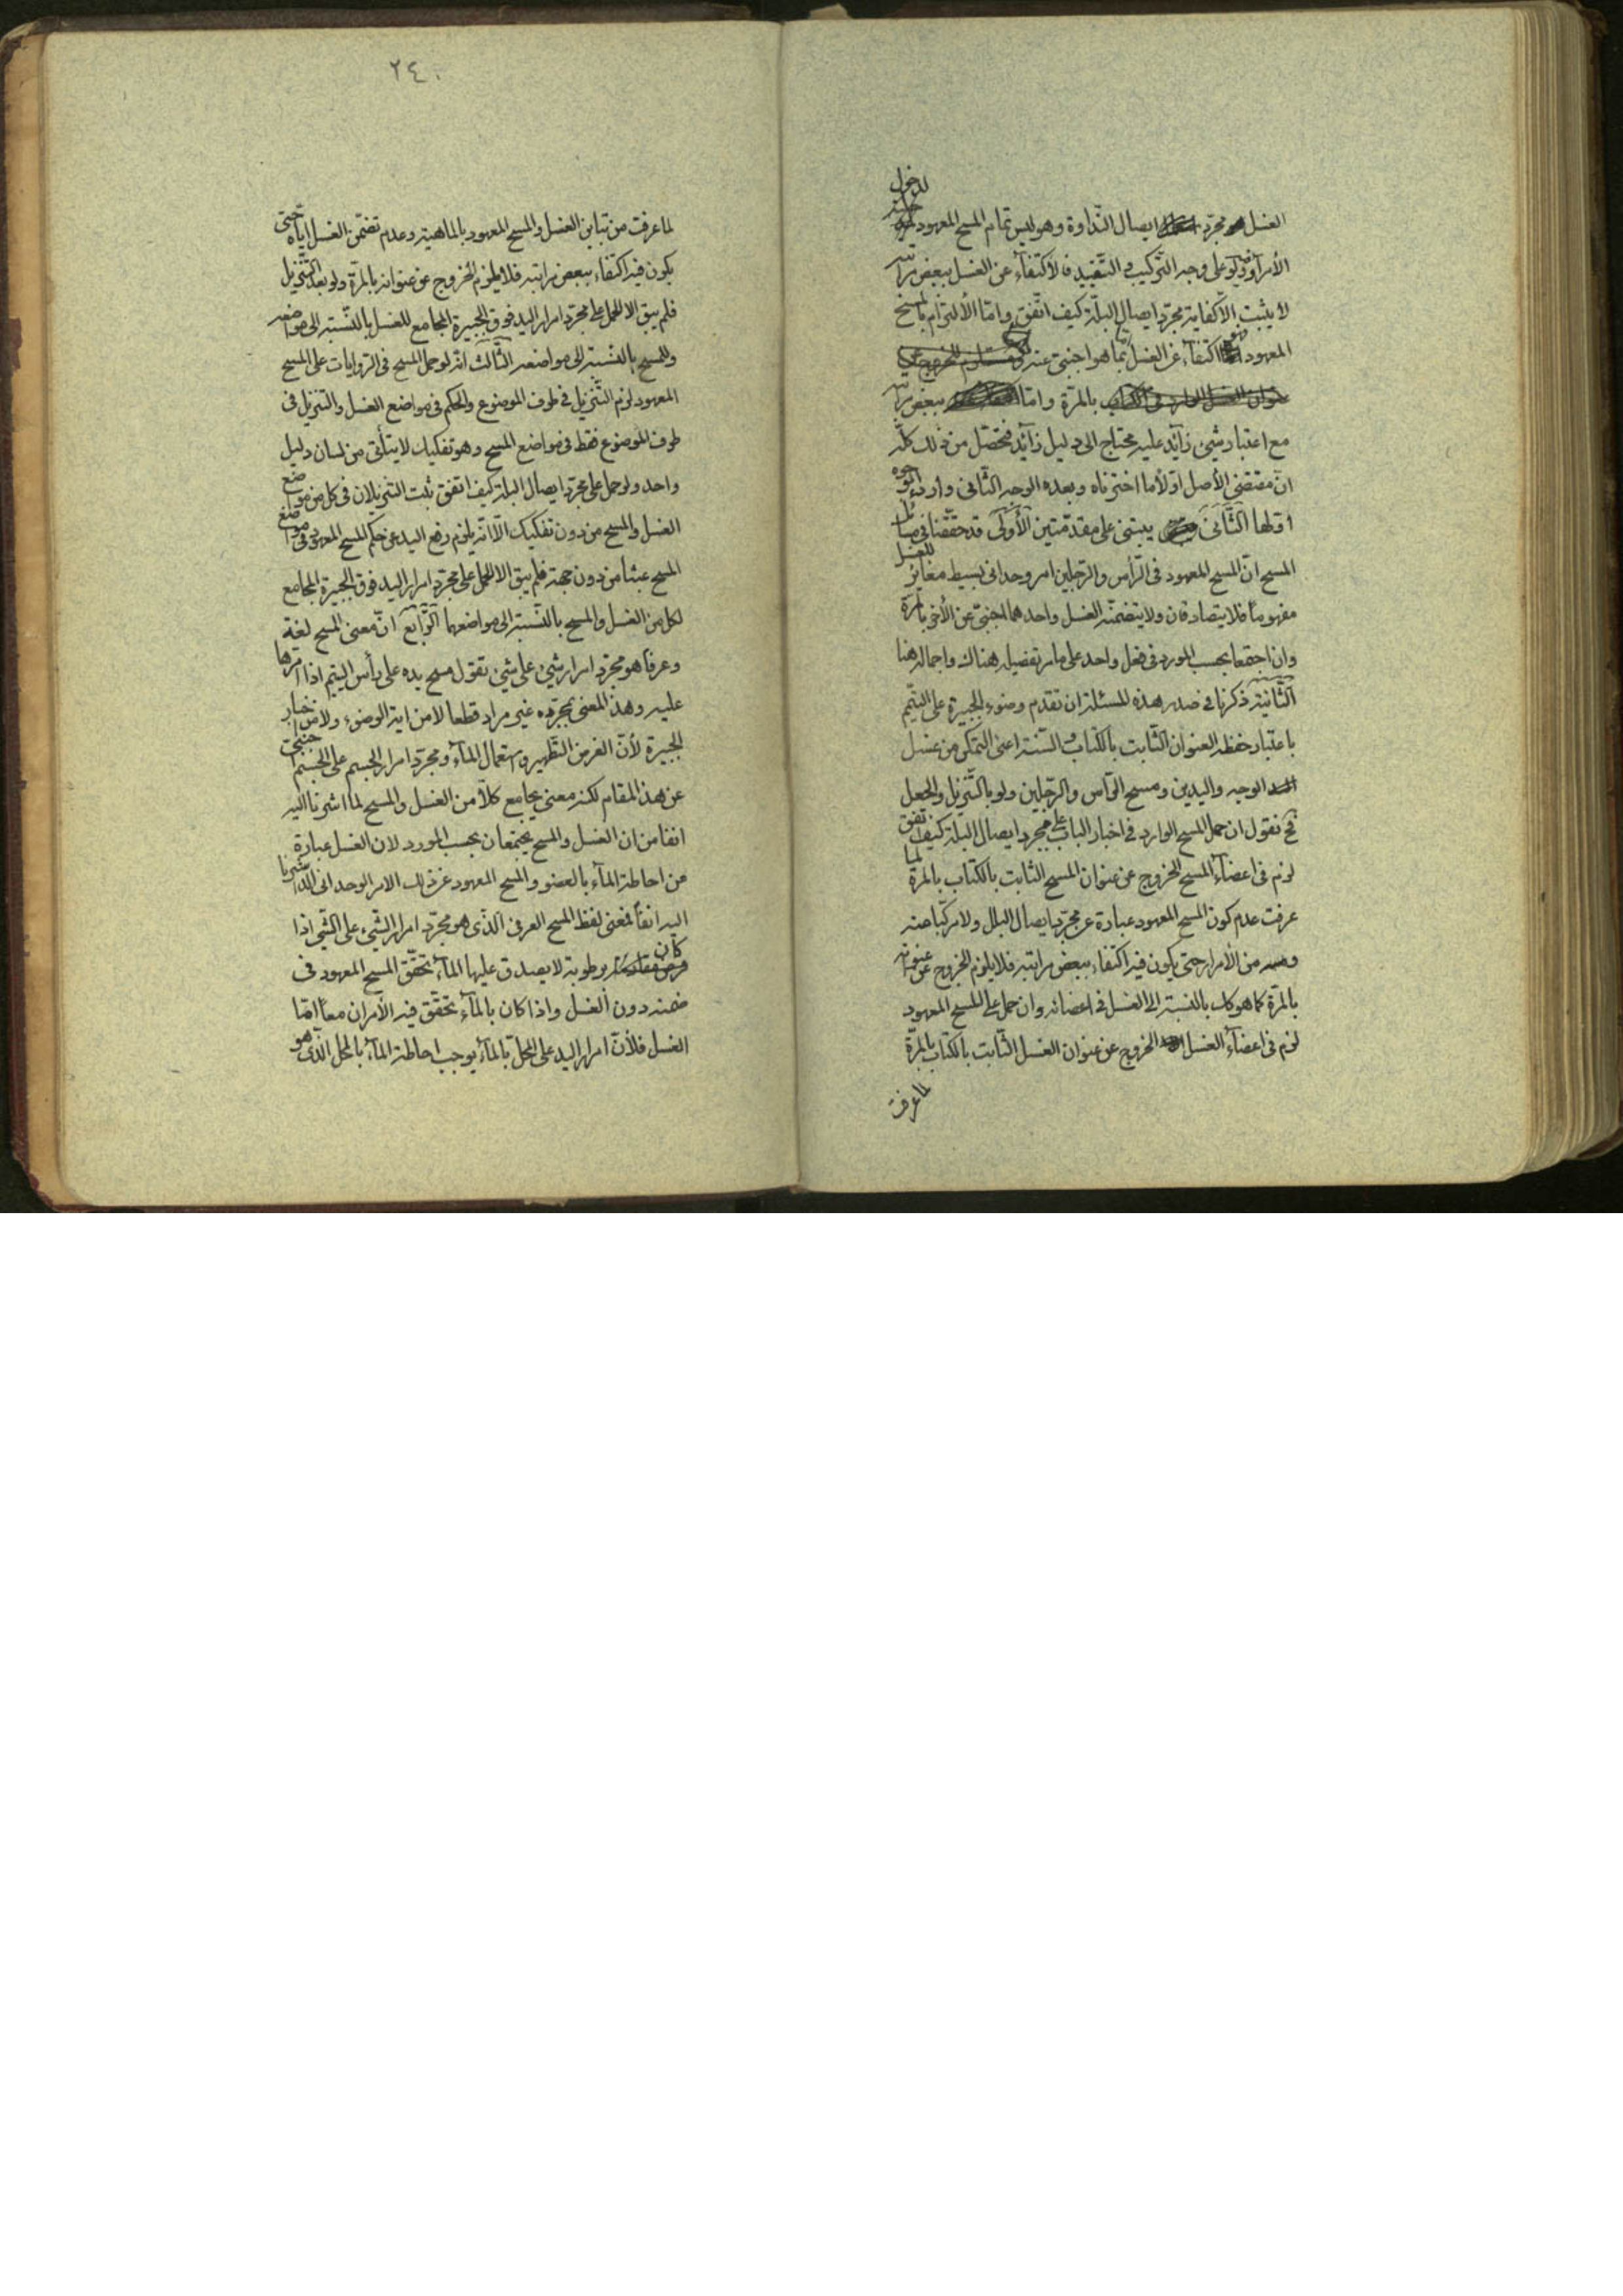 الغسل مجرّد ايصال النّداوة وهو ليس تمام المسح المعهود لدخول
الأمرار فيه ولو على وجه التّركيب او التّقييد فالاكتفآء عن الغسل ببعض مراتبه
لا يثبت الّا كفاية مجرّد ايصال البلّة كيف اتّفق وامّا الألتزام بالمسح
المعهود فهو اكتفآء عن الغسل بما هو اجنبىّ عنه
بالمرّة وامّا ببعض مراتبه
مع اعتبار شيئ زآئد عليه محتاج الى دليل زآئد فتحصّل من ذلك كلّه
انّ مقتضى الأصل اوّلاً ما اخترناه وبعده الوجه الثّانى واردء الوجوه
اوّلها الثّانى يبتنى على مقدّمتين الأولى قد حقّقنا فى مسائل
المسح انّ المسح المعهود فى الرّأس والرّجلين امر وحدانى بسيط مغاير للغسل
مفهوماً فلا يتصادقان ولا يتضمّنه الغسل واحدهما اجنبىّ عن الأخر بالمرّة
وان اجتمعا بحسب المورد فى فعل واحد على ما مر تفصيله هناك واجماله هنا
الثّانية ذكرنا فى صدر هذه المسئلة ان تقدم وضوء الجبيرة على التيمّم
باعتبار حفظه العنوان الثّابت بالكتاب والسّنة اعنى التمكّن من غسل
الوجه واليدين ومسح الرّأس والرّجلين ولو بالتّنزيل والجعل
فح نقول ان حمل المسح الوارد فى اخبار الباب على مجرد ايصال البلة كيف اتفق
لزم فى اعضآء المسح الخروج عن عنوان المسح الثّابت بالكتاب بالمرّة لما
عرفت عدم كون المسح المعهود عبارة عن مجرّد ايصال البلل ولا مركّباً منه
ومن الأمرار حتى يكون فيه اكتفاء ببعض مراتبه فلا يلزم الخروج عن عنوانه
بالمرّة كما هو كك بالنّسبة الى الغسل فى اعضائه وان حمل على المسح المعهود
لزم فى اعضآء الغسل الخروج عن عنوان الغسل الثّابت بالكتاب بالمرّة
لما عرفت
٢٤٠
لما عرفت من تباين الغسل والمسح المعهود بالماهية وعدم تضمّن الغسل ايّاه حتى
يكون فيه اكتفاء ببعض مراتبه فلا يلزم الخروج عن عنوانه بالمرّة ولو بعد التّنزيل
فلم يبق الا الحمل على مجرّد امرار اليد فوق الجبيرة الجامع للغسل بالنّسبة الى مواضعه
وللمسح بالنّسبة الى مواضعه الثّالث انّه لو حمل المسح فى الرّوايات على المسح
المعهود لزم التّنزيل فى طرف الموضوع والحكم فى مواضع الغسل والتّنزيل فى
طرف الموضوع فقط فى مواضع المسح وهو تفكيك لا يتأتى من لسان دليل
واحد ولو حمل على مجرّد ايصال البلة كيف اتفق ثبت التّنزيلان فى كل من مواضع
الغسل والمسح من دون تفكيك الّا انّه يلزم رفع اليد عن حكم المسح المعهود فى مواضع
المسح عبثا من دون جهة فلم يبق الا الحمل على مجرّد امرار اليد فوق الجبيرة الجامع
لكل من الغسل والمسح بالنّسبة الى مواضعهما الرّابع انّ معنى المسح لغة
وعرفا هو مجرّد امرار شيئ على شيئ تقول مسح يده على رأس اليتيم اذا امرّها
عليه وهذ المعنى بمجرّده غير مراد قطعا لا من اية الوضوء ولا من اخبار
الجبيرة لأنّ الغرض التّطهير واستعمال المآء ومجرّد امرار الجسم على الجسم اجنبىّ
عن هذ المقام لكنه معنى يجامع كلاً من الغسل والمسح لما اشرنا اليه
انفا من ان الغسل والمسح يجتمعان بحسب المورد لان الغسل عبارة
من احاطة المآء بالعضو والمسح المعهود عن ذلك الامر الوحدانى الّذى اشرنا
اليه انفاً فمعنى لفظ المسح العرفى الّذى هو مجرّد امرار الشّيئ على الشّيئ اذا
كان برطوبة لا يصدق عليها المآء تحقّق المسح المعهود فى
ضمنه دون الغسل واذا كان بالمآء تحقّق فيه الأمران معاً امّا
الغسل فلأنّ امرار اليد على المحلّ بالمآء يوجب احاطة المآء بالمحل الّذى هو